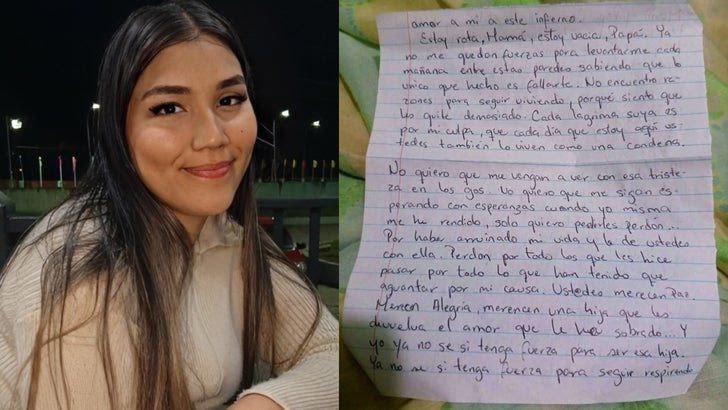 amor a mi a este infierno.
Estoy rota, Mamá, estoy vacia, Papá. Ya
no me quedan fuerzas para levantarme cada
mañana entre estas paredes sabiendo que lo
unico que hecho es fallarte. No encuentro ra-
zones para seguir viviendo, porque siento que
les quite demasiado. Cada lagrima suya es
por mi culpa, que cada dia que estoy aqui us-
tedes tambien lo viven como una condena.
No quiero que me vengan a ver con esa triste-
za en los ojos. No quiero que me sigan es-
perando con esperanzas cuando yo misma
me he rendido, solo quiero pedirles Perdón...
Por haber arruinado mi vida y la de ustedes
con ella. Perdon por todo los que les hice
pasar por todo lo que han tenido que
aguantar por mi causa. Ustedes merecen Paz.
Merecen Alegria, merecen una hija que les
devuelva el amor que le sobrado... Y
yo ya no se si tenga fuerza para ser esa hija.
Ya no se si tenga fuerza para seguir respirando